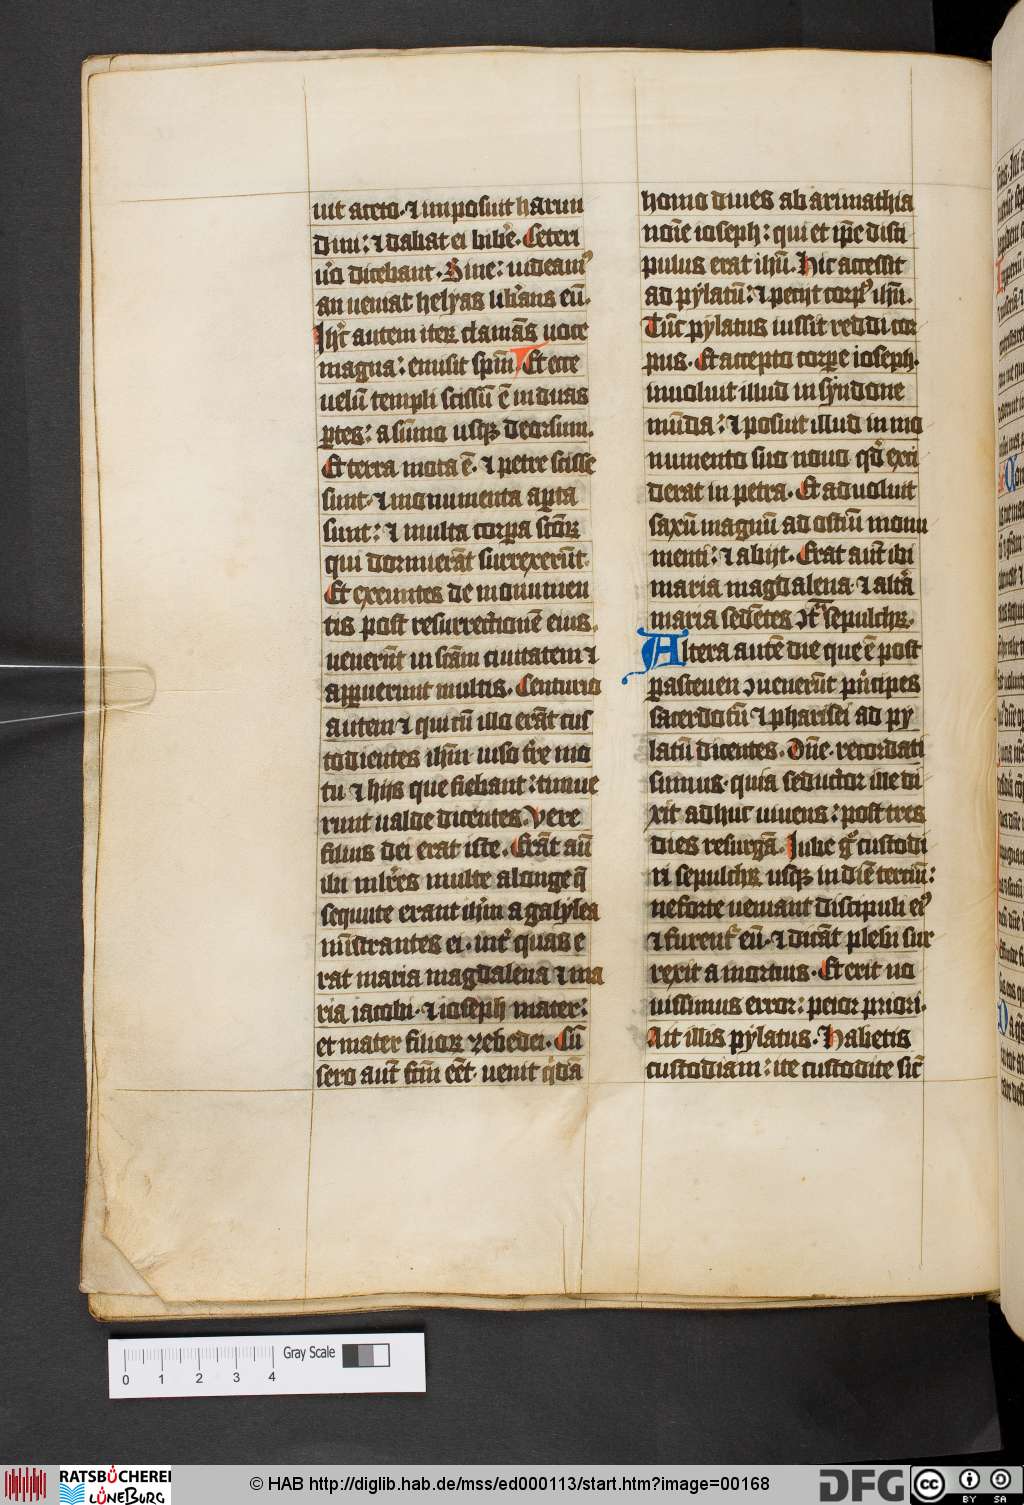 uit aceto · ⁊ imposuit harun
dini : ⁊ dabat ei bib̾e · Ceteri
u̾o dicebant · Sine : uideam⁹
an ueniat helyas lib̾ans eū ·
Ihc̄ autem iteꝝ clamās uoce
magna : emisit spm̄ Et ecce
uelū templi scissū ē in duas
ꝑtes : a sūmo usqꝫ deorsum .
Et terra mota ē · ⁊ petre scisse
sunt · ⁊ monumenta aꝑta
sunt : ⁊ multa corꝑa scōꝝ
qui dormierāt surrexerūt ·
Et exeuntes de monumen
tis post resurrectionē eius ·
uenerūt in scām ciuitatem ⁊
apparuerunt multis · Centurio
autem ⁊ qui cū illo erāt cus
todientes ihm̄ · uiso t̾re mo
tu ⁊ hijs que fiebant : timue
runt ualde dicentes · Vere
filius dei erat iste · Erāt aūt
ibi ml̾res multe a longe q̄
secute erant ihm̄ a galylea
mīstrantes ei · int̾ quas e
rat maria magdalena ⁊ ma
ria iacobi · ⁊ ioseph mater :
et mater filioꝝ zebedei · Cū
sero aūt fcm̄ eēt · uenit q̓dā
homo diues ab arimathia
noīe ioseph : qui et ip̄e disci
pulus erat ihū · Hic accessit
ad pylatū : ⁊ petijt corp⁹ ihū .
Tūc pylatus iussit reddi cor
pus · Et accepto corꝑe ioseph ·
inuoluit illud in syndone
mūda : ⁊ posuit illud in mo
numento suo nouo qd̓ exci
derat in petra · Et aduoluit
saxū magnū ad ostiū monu
menti : ⁊ abijt · Erat aūt ibi
maria magdalena · ⁊ alt̾a
maria sedētes ꝯt̾ sepulchꝝ ·
Altera autē die que ē post
parasceuen ꝯuenerūt p̓ncipes
sacerdotū ⁊ pharisei ad py
latū dicentes · Dn̄e · recordati
sumus · quia seductor ille di
xit adhuc uiuens : post tres
dies resurgā · Iube g̊ custodi
ri sepulchꝝ usqꝫ in diē terciū :
ne forte ueniant discipuli ei⁹
⁊ furent̾ eū · ⁊ dicāt plebi sur
rexit a mortuis · Et erit no
uissimus error : peior priori ·
Ait illis pylatus · Habetis
custodiam : ite custodite sic̄
Gray Scale
0 1 2 3 4
RATSBÜCHEREI LÜNEBURG
© HAB http://diglib.hab.de/mss/ed000113/start.htm?image=00168
DFG
cc BY SA